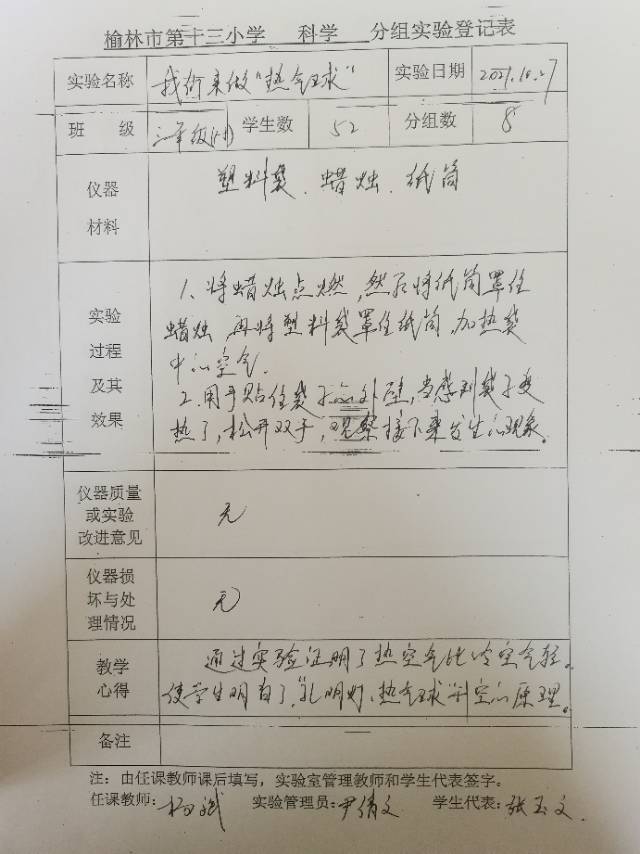 榆林市第十三小学 科学 分组实验登记表
实验名称 我们来做“热气球” 实验日期 2021.10.27
班 级 三年级 学生数 52 分组数 8
仪器材料 塑料袋、蜡烛、纸筒
实验过程及其效果
1、将蜡烛点燃,然后将纸筒罩住
蜡烛,再将塑料袋罩住纸筒,加热袋
中的空气.
2.用手贴住袋子的外壁,当感到袋子变
热了,松开双手,观察接下来发生的现象.
仪器质量或实验改进意见 无
仪器损坏与处理情况 无
教学心得
通过实验证明了热空气比冷空气轻。
使学生明白了,“孔明灯、热气球”升空的原理。
备注
注:由任课教师课后填写,实验室管理教师和学生代表签字。
任课教师:杨斌 实验管理员:尹倩文 学生代表:张玉文